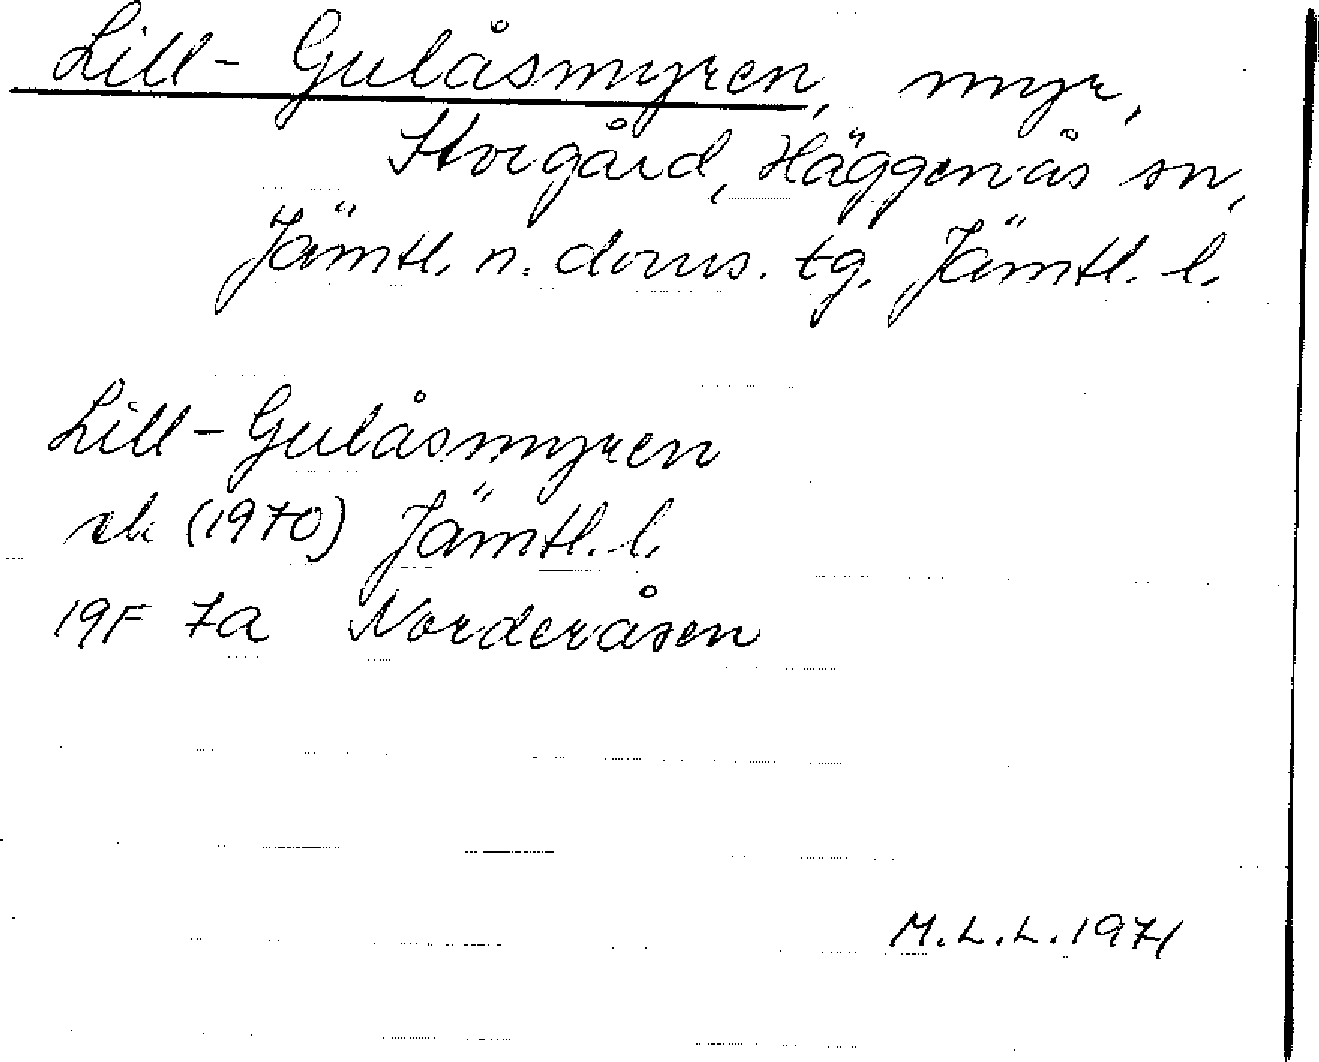 Lill-Gulåsmyren, myr,
Storgård, Häggenås sn,
Jämtl. n. doms. tg. Jämtl. l.
Lill-Gulåsmyren
ek (1970) Jämtl. l.
19F 7a Norderåsen
M.L.L. 1971